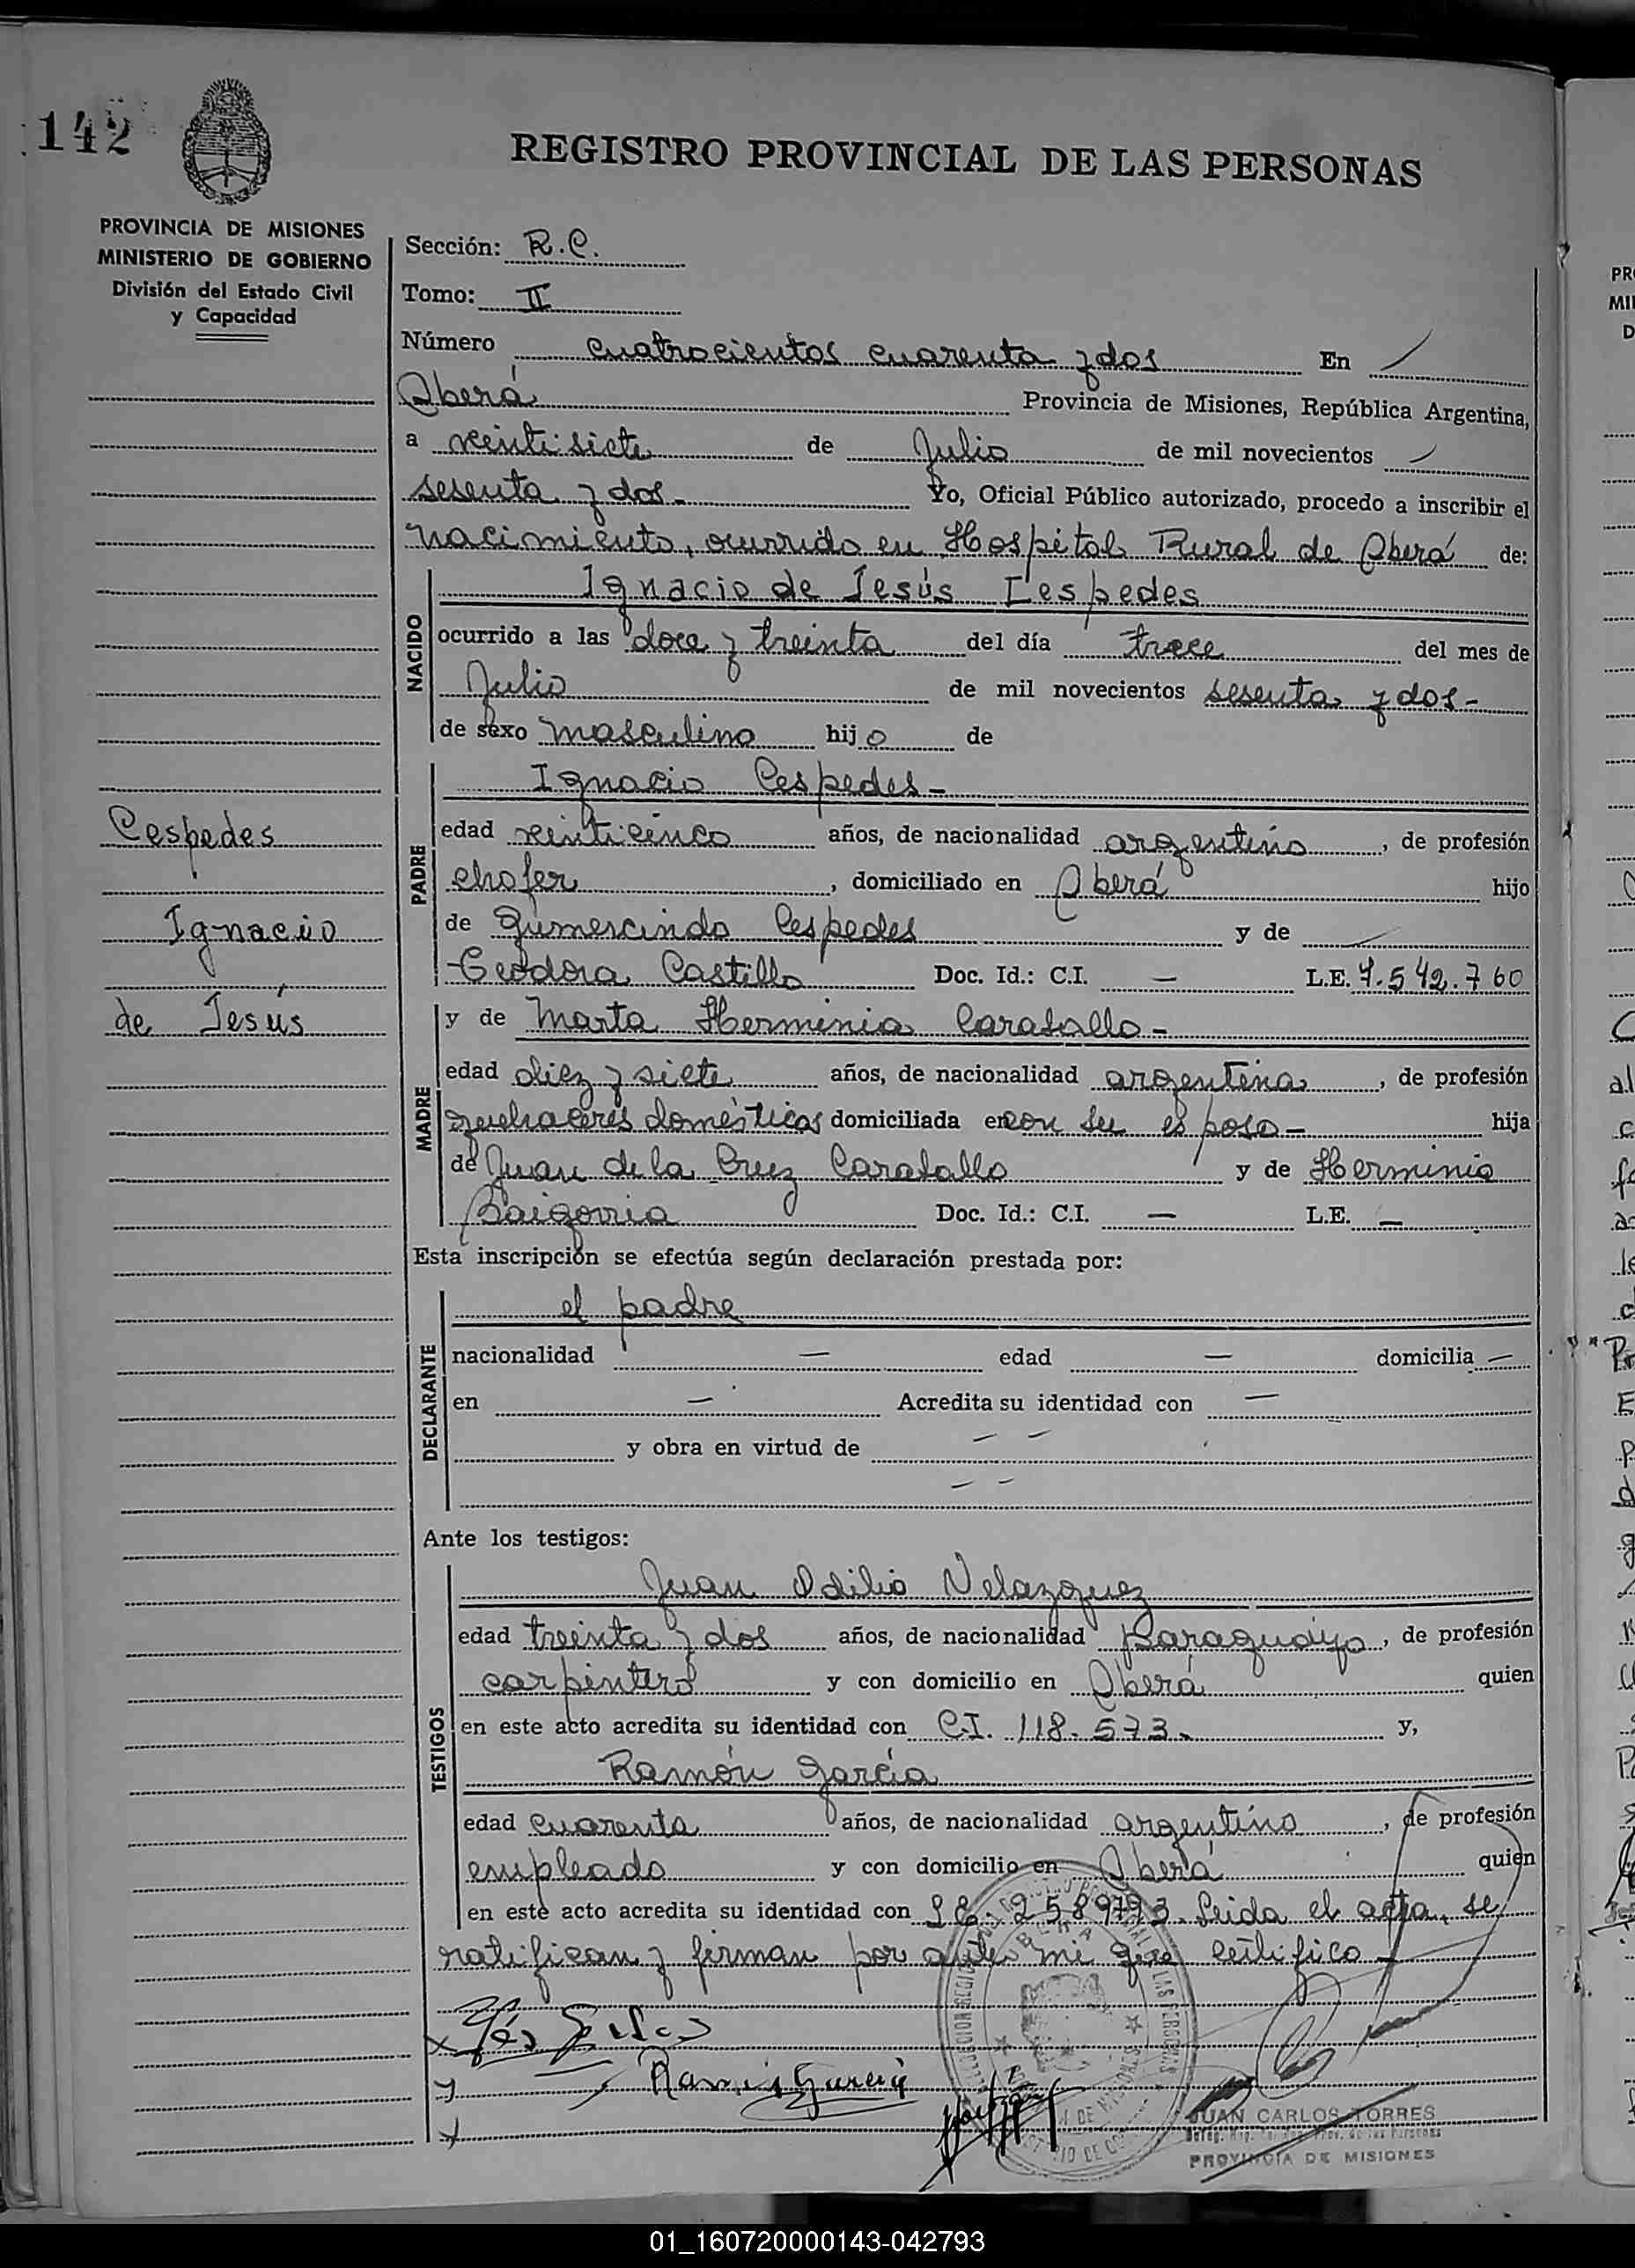 142
REGISTRO PROVINCIAL DE LAS PERSONAS
PROVINCIA DE MISIONES
MINISTERIO DE GOBIERNO
División del Estado Civil
y Capacidad
Sección: R.C.
Tomo: II
Número cuatrocientos cuarenta y dos En
Oberá Provincia de Misiones, República Argentina,
a veinti siete de Julio de mil novecientos
sesenta y dos - Yo, Oficial Público autorizado, procedo a inscribir el
nacimiento, ocurrido en Hospital Rural de Oberá de:
NACIDO
Ignacio de Jesús Cespedes
ocurrido a las doce y treinta del día trece del mes de
Julio de mil novecientos sesenta y dos -
de sexo masculino hijo de
PADRE
Ignacio Cespedes -
edad veinticinco años, de nacionalidad argentino, de profesión
chofer, domiciliado en Oberá hijo
de Gumercindo Cespedes y de
Teodora Castillo Doc. Id.: C.I. — L.E. 7.542.760
Cespedes
Ignacio
de Jesús
MADRE
y de Marta Herminia Caraballo -
edad diez y siete años, de nacionalidad argentina, de profesión
quehaceres domésticos domiciliada en con su esposo - hija
de Juan de la Cruz Caraballo y de Herminia
Baigorria Doc. Id.: C.I. — L.E. —
Esta inscripción se efectúa según declaración prestada por:
DECLARANTE
el padre
nacionalidad — edad — domicilia —
en — Acredita su identidad con —
y obra en virtud de — —
— —
Ante los testigos:
TESTIGOS
Juan Odilio Velazquez
edad treinta y dos años, de nacionalidad paraguayo, de profesión
carpintero y con domicilio en Oberá quien
en este acto acredita su identidad con CI. 118.573. y,
Ramón García
edad cuarenta años, de nacionalidad argentino, de profesión
empleado y con domicilio en Oberá quien
en este acto acredita su identidad con L.E. 2589793. Leida el acta, se
ratifican y firman por ante mi que certifico
Ramón García
JUAN CARLOS TORRES
PROVINCIA DE MISIONES
01_160720000143-042793